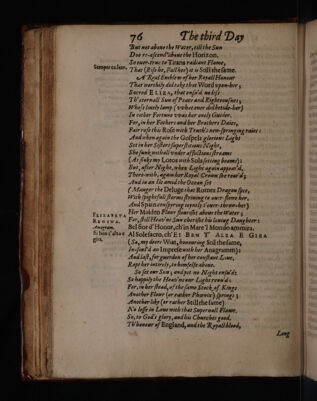 76 The third Day
But not aboue the Water, till the Sun
Doo re-ascend aboue the Horizon.
So ouer-true to Titans radiant Flame,
Semper eadem. That (Rise he, Fall he) it is Still the same.
A Real Emblem of her Royall Honour
That worthely did take that Word vpon-her;
Sacred ELIZA, that ensu'd no less
Th'eternall Sun of Peace and Righteousnes;
Whose liuely lamp (what euer did betide-her)
In either Fortune was her onely Guider.
For, in her Fathers and her Brothers Daies,
Fair rose this Rose with Truth's new-springing raies:
And when again the Gospels glorious Light
Set in her Sisters superstitious Night,
She sunk withall vnder afflictions streams
(As sinks my Lotos with Sols setting beams):
But, after Night, when Light again appear'd,
There-with, again her Royal Crown she rear'd;
And in an Ile amid the Ocean set
(Maugre the Deluge that Romes Dragon spet,
With spightfull storms striuing to ouer-flowe her,
And Spain conspiring iointly t'ouer-throw-her)
Her Maiden Flowr flourisht aboue the Water;
ELIZABETA For, still Heav'ns Sun cherisht his louing Daughter:
REGINA. Bel fior d'Honor, ch'in Mare'l Mondo ammira,
Anagram. Al Sole sacro, ch'Ei BEN T' ALZA E GIRA
(So, my deer Wiat, honouring Still the same,
In-soul'd an Imprese with her Anagramm):
And last, for guerdon of her constant Loue,
Rapt her intirely, to himselfe aboue.
So set our Sun; and yet no Night ensu'd:
So happily the Heav'ns our Light renu'd:
For, in her stead, of the same Stock of Kings
Another Flowr (or rather Phœnix) springs;
Another like (or rather Still the same)
No lesse in Loue with that Supernall Flame.
So, to God's glory, and his Churches good,
Th'honour of England, and the Royall blood,
Long